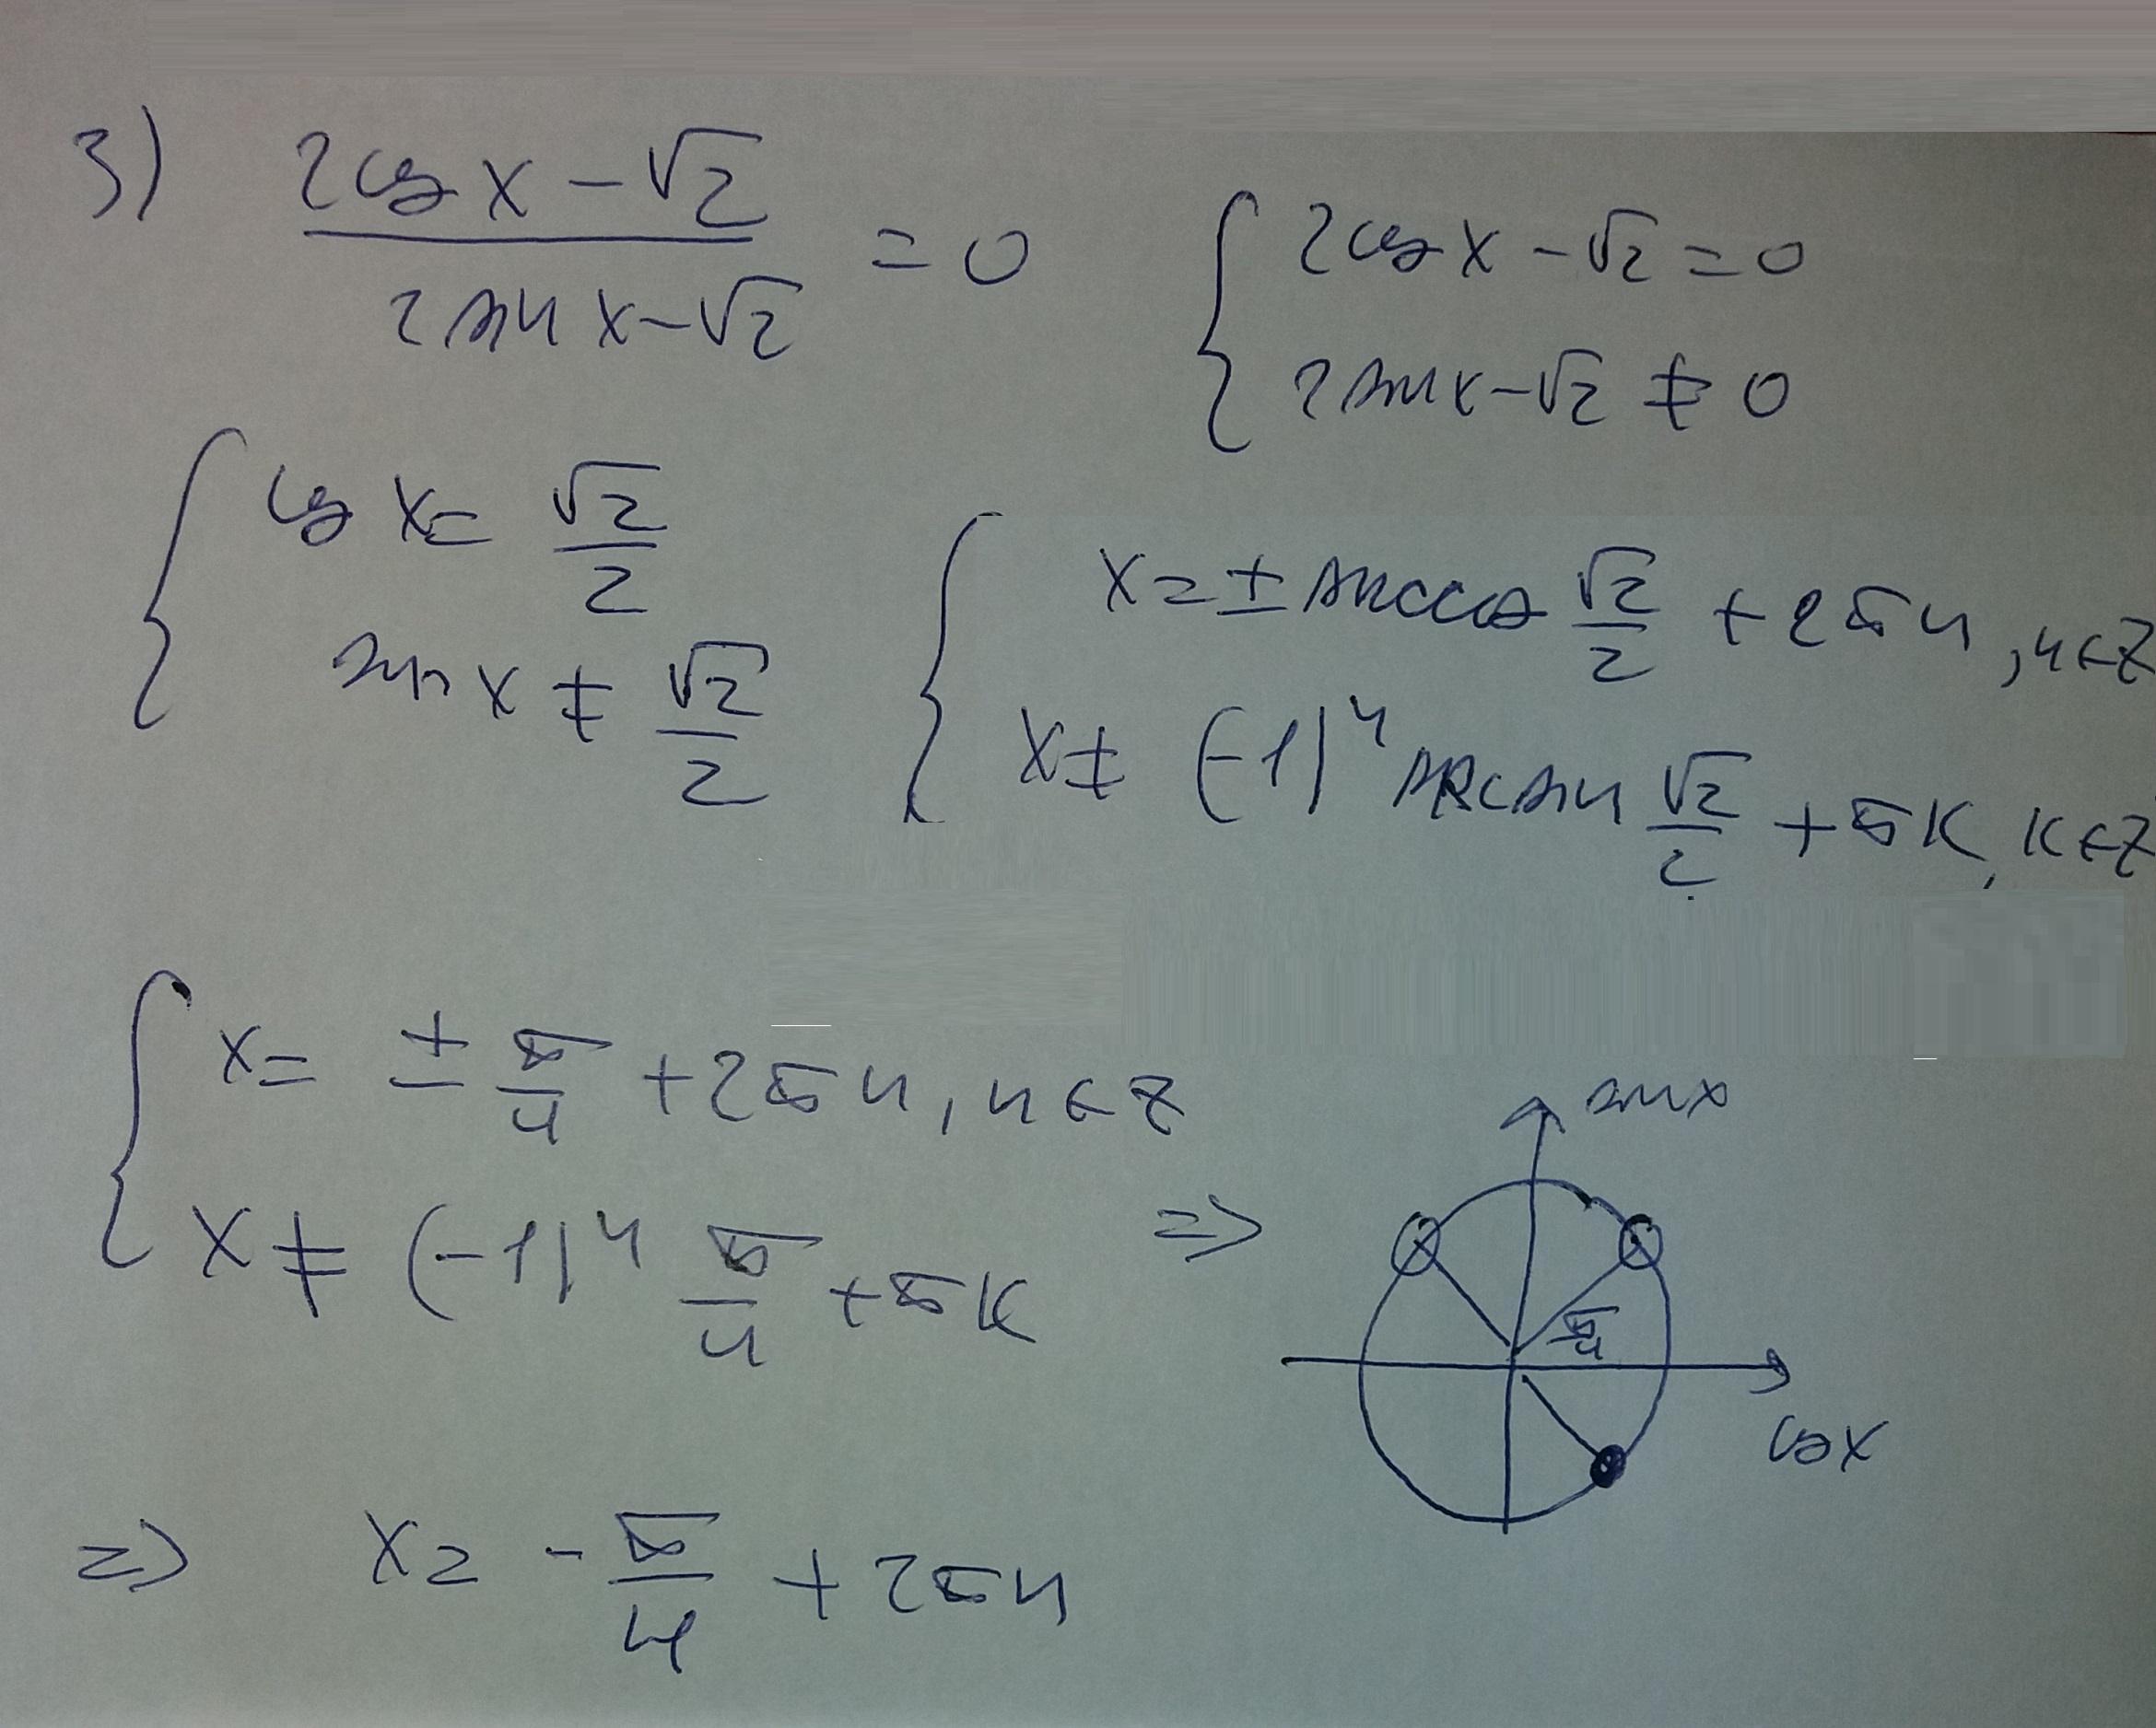 3) (2cos x − √2)/(2sin x − √2) = 0
{ 2cos x − √2 = 0
2sin x − √2 ≠ 0
{ cos x = √2/2
sin x ≠ √2/2
{ x = ± arccos √2/2 + 2πn, n∈Z
x ≠ (−1)ⁿ arcsin √2/2 + πk, k∈Z
{ x = ± π/4 + 2πn, n∈Z
x ≠ (−1)ⁿ π/4 + πk =>
sin x
π/4
cos x
=> x = − π/4 + 2πn